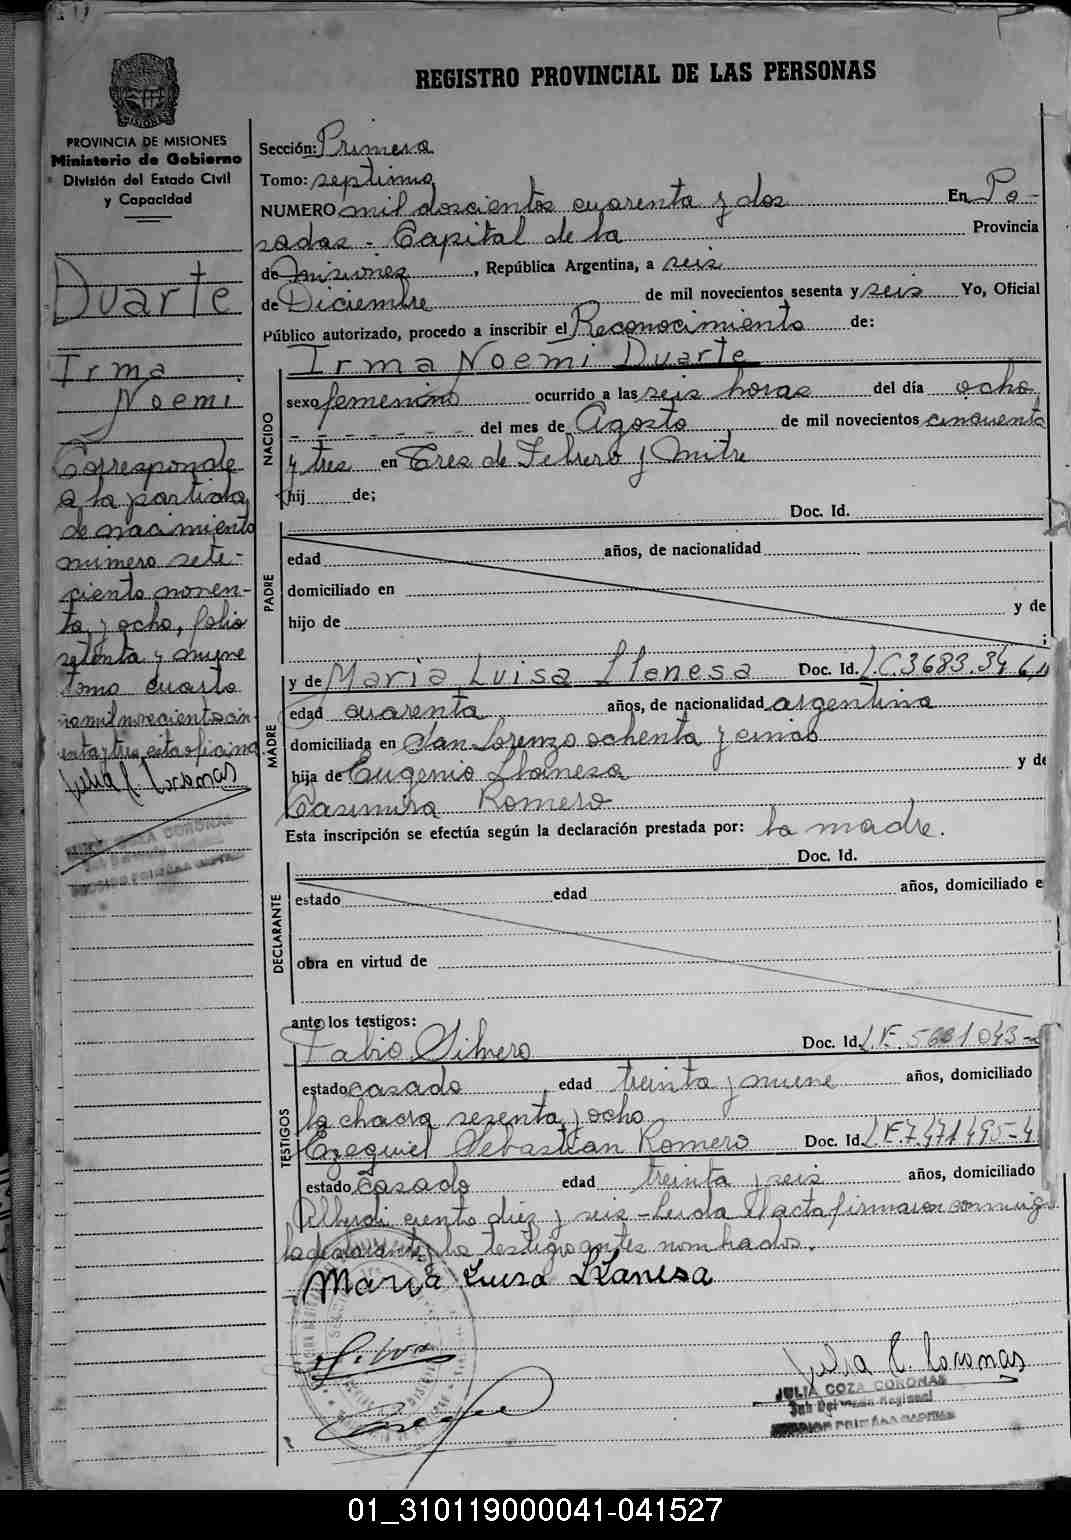 REGISTRO PROVINCIAL DE LAS PERSONAS
PROVINCIA DE MISIONES
Ministerio de Gobierno
División del Estado Civil
y Capacidad
Duarte
Irma
Noemi
Corresponde
a la partida
de nacimiento
número sete-
ciento noven-
ta y ocho, folio
setenta y nueve
tomo cuarto
Julia C. Coronas
Sección: Primera
Tomo: septimo
NUMERO mil doscientos cuarenta y dos En Po-
sadas - Capital de la Provincia
de Misiones, República Argentina, a seis
de Diciembre de mil novecientos sesenta y seis Yo, Oficial
Público autorizado, procedo a inscribir el Reconocimiento de:
Irma Noemi Duarte
NACIDO
sexo femenino ocurrido a las seis horas del día ocho
del mes de Agosto de mil novecientos cincuenta
y tres en Tres de Febrero y Mitre
hij de;
Doc. Id.
PADRE
edad años, de nacionalidad
domiciliado en
hijo de y de
;
MADRE
y de Maria Luisa Llanesa Doc. Id. L.C.3683.346
edad cuarenta años, de nacionalidad argentina
domiciliada en San Lorenzo ochenta y cinco
hija de Eugenio Llanesa y de
Casimira Romero
Esta inscripción se efectúa según la declaración prestada por: la madre.
Doc. Id.
DECLARANTE
estado edad años, domiciliado e
obra en virtud de
ante los testigos:
TESTIGOS
Fabio Silvero Doc. Id. L.E. 5601043
estado casado edad treinta y nueve años, domiciliado
la chacra sesenta y ocho
Ezequiel Sebastian Romero Doc. Id. L.E.7.471.495
estado casado edad treinta y seis años, domiciliado
Alberdi ciento diez y seis - leida el acta firmaron conmigo
la declarante y los testigos antes nombrados.
Maria Luisa Llanesa
Julia C. Coronas
JULIA COZA CORONAS
Sub Delegada Regional
SECCION PRIMERA CAPITAL
01_310119000041-041527